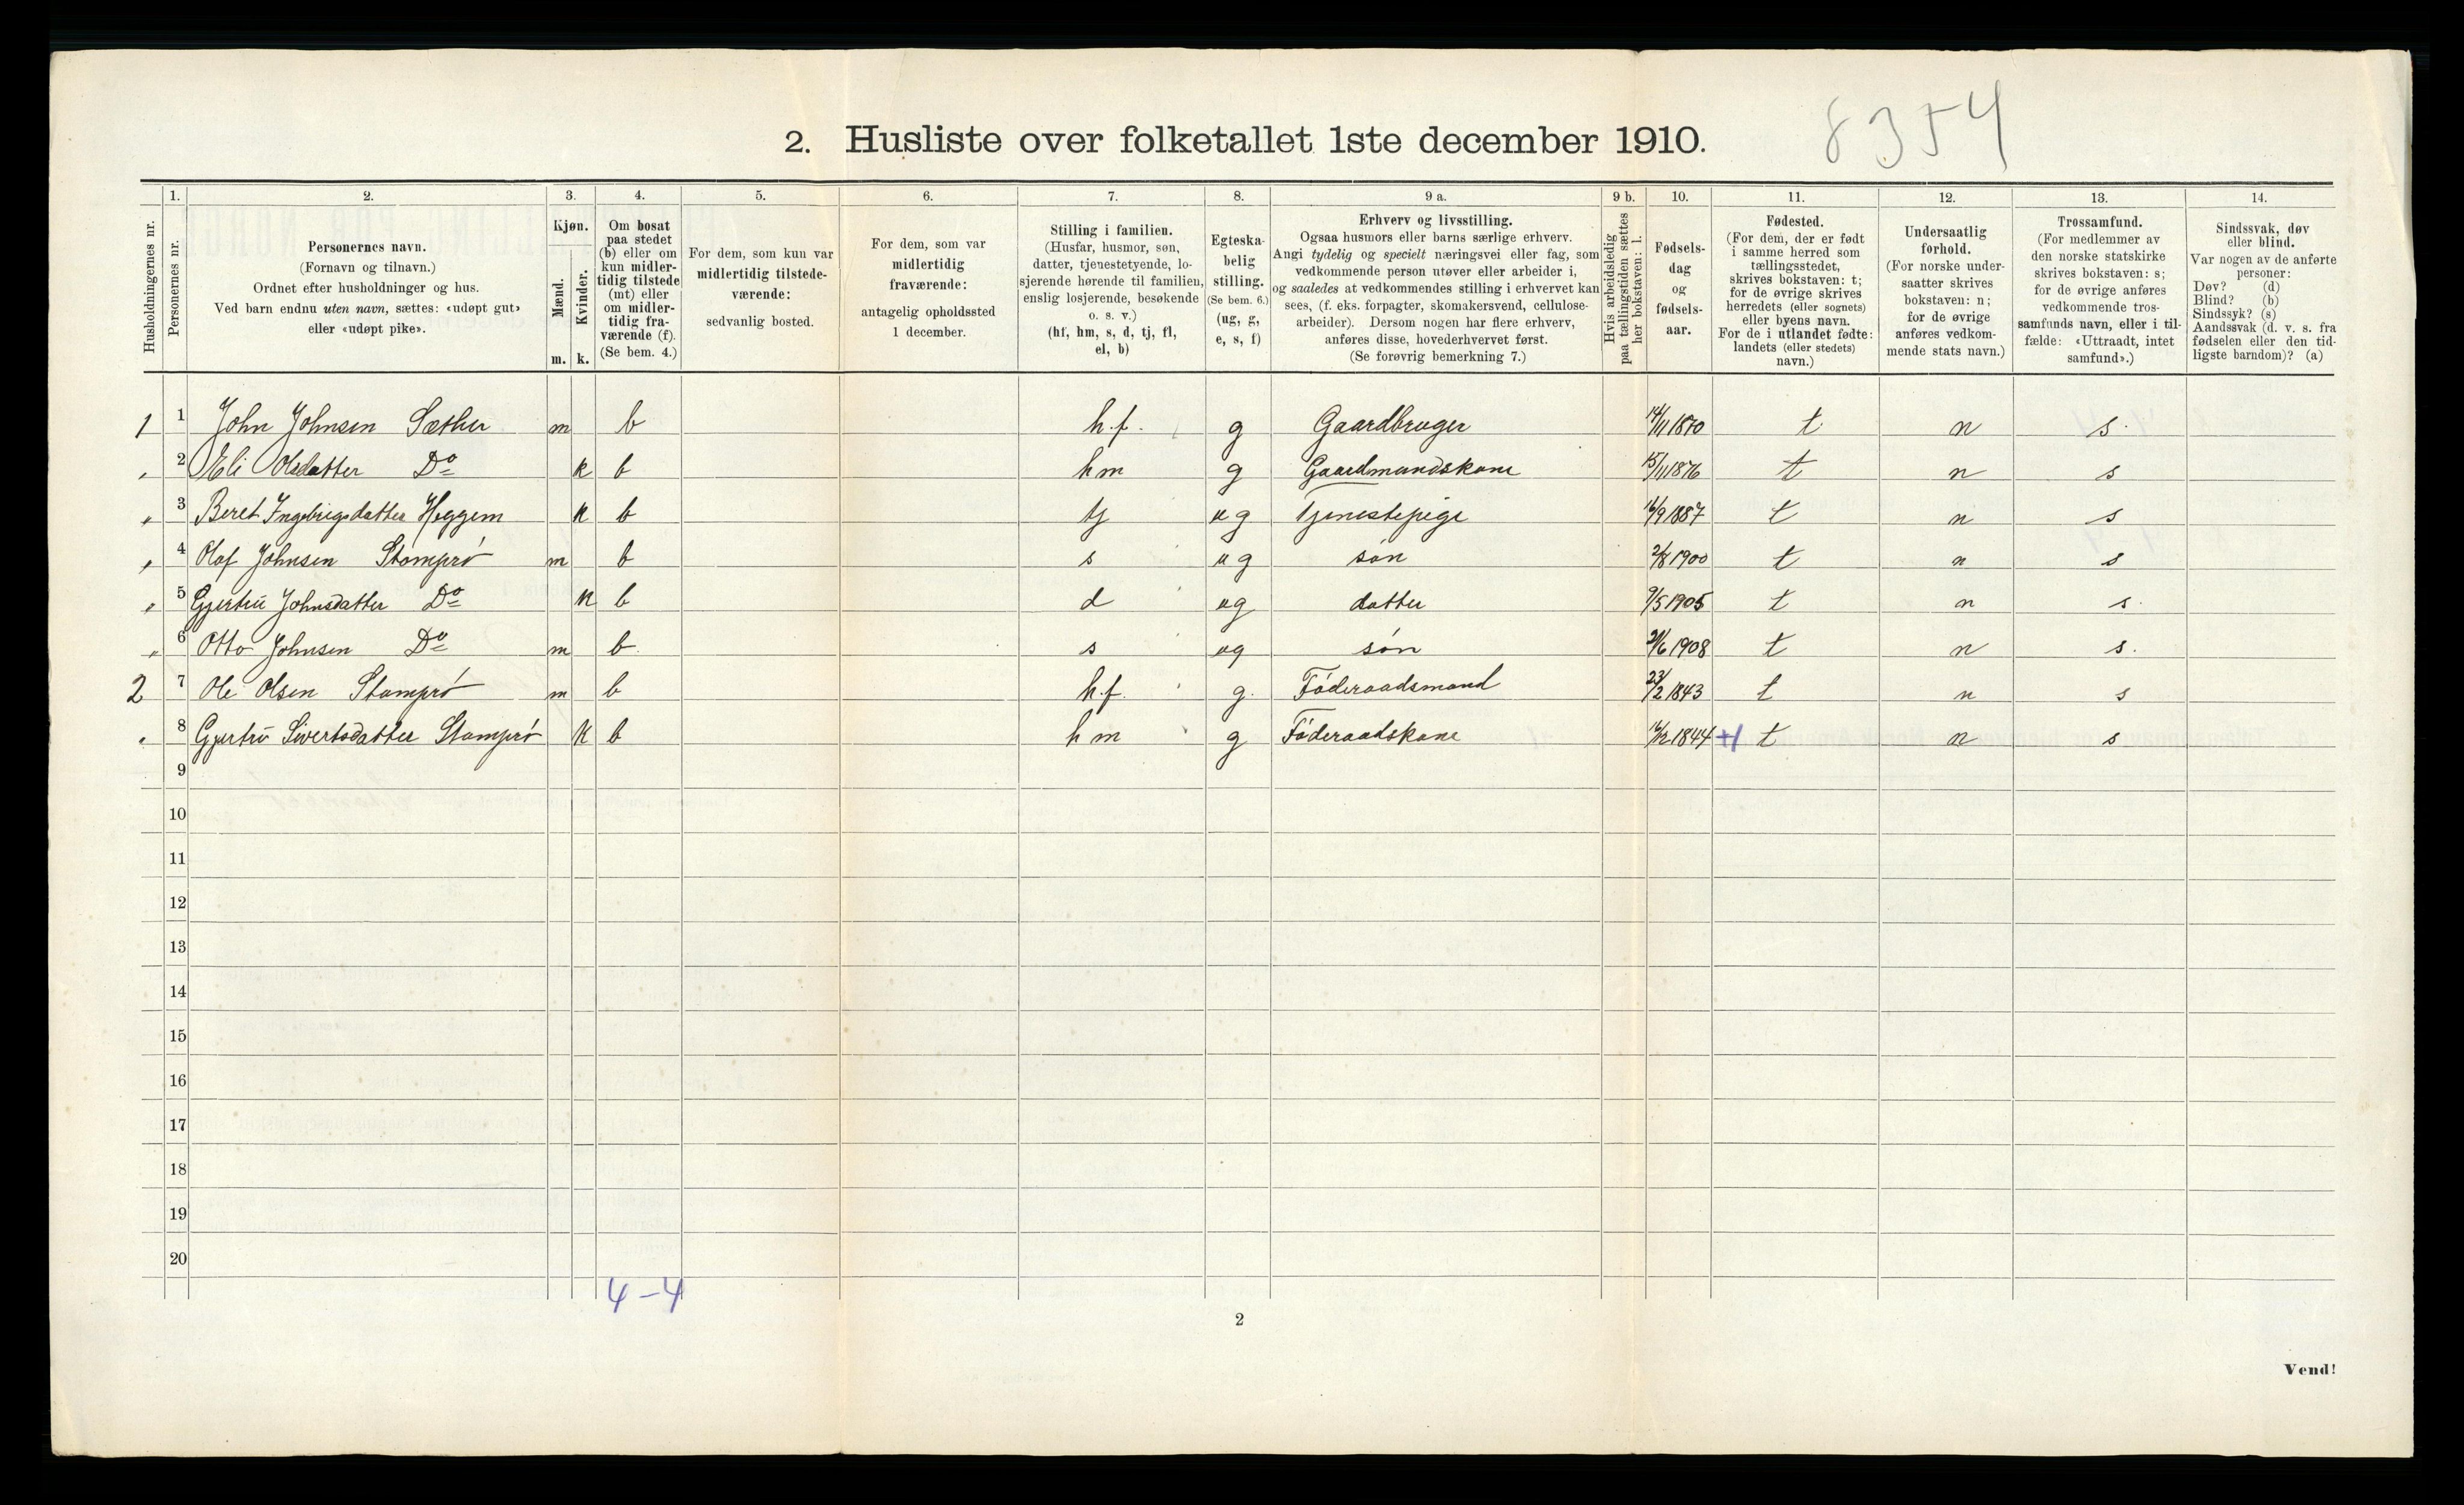 8354
2. Husliste over folketallet 1ste december 1910.
1. 2. 3. 4. 5. 6. 7. 8. 9 a. 9 b. 10. 11. 12. 13. 14.
Husholdningernes nr.
Personernes nr.
Personernes navn.
(Fornavn og tilnavn.)
Ordnet efter husholdninger og hus.
Ved barn endnu uten navn, sættes: «udøpt gut»
eller «udøpt pike».
Kjøn.
Mænd.
Kvinder.
m. k.
Om bosat
paa stedet
(b) eller om
kun midler-
tidig tilstede
(mt) eller
om midler-
tidig fra-
værende (f).
(Se bem. 4.)
For dem, som kun var
midlertidig tilstede-
værende:
sedvanlig bosted.
For dem, som var
midlertidig
fraværende:
antagelig opholdssted
1 december.
Stilling i familien.
(Husfar, husmor, søn,
datter, tjenestetyende, lo-
sjerende hørende til familien,
enslig losjerende, besøkende
o. s. v.)
(hf, hm, s, d, tj, fl,
el, b)
Egteska-
belig
stilling.
(Se bem. 6.)
(ug, g,
e, s, f)
Erhverv og livsstilling.
Ogsaa husmors eller barns særlige erhverv.
Angi tydelig og specielt næringsvei eller fag, som
vedkommende person utøver eller arbeider i,
og saaledes at vedkommendes stilling i erhvervet kan
sees, (f. eks. forpagter, skomakersvend, cellulose-
arbeider). Dersom nogen har flere erhverv,
anføres disse, hovederhvervet først.
(Se forøvrig bemerkning 7.)
Hvis arbeidsledig
paa tællingstiden sættes
her bokstaven: l.
Fødsels-
dag
og
fødsels-
aar.
Fødested.
(For dem, der er født
i samme herred som
tællingsstedet,
skrives bokstaven: t;
for de øvrige skrives
herredets (eller sognets)
eller byens navn.
For de i utlandet fødte:
landets (eller stedets)
navn.)
Undersaatlig
forhold.
(For norske under-
saatter skrives
bokstaven: n;
for de øvrige
anføres vedkom-
mende stats navn.)
Trossamfund.
(For medlemmer av
den norske statskirke
skrives bokstaven: s;
for de øvrige anføres
vedkommende tros-
samfunds navn, eller i til-
fælde: «Uttraadt, intet
samfund».)
Sindssvak, døv
eller blind.
Var nogen av de anførte
personer:
Døv? (d)
Blind? (b)
Sindssyk? (s)
Aandssvak (d. v. s. fra
fødselen eller den tid-
ligste barndom)? (a)
1 1 John Johnsen Sæther m b h.f. g Gaardbruger 14/11 1870 t n s.
" 2 Eli Olsdatter Do k b hm g Gaardmandskone 15/11 1876 t n s
" 3 Beret Ingebrigsdatter Heggem k b tj ug Tjenestepige 16/9 1887 t n s
" 4 Olaf Johnsen Stomprø m b s ug søn 2/8 1900 t n s
" 5 Gjertru Johnsdatter Do k b d ug datter 9/5 1905 t n s.
" 6 Otto Johnsen Do m b s ug søn 21/6 1908 t n s.
2 7 Ole Olsen Stomprø m b h.f. g. Føderaadsmand 23/2 1843 t n s
" 8 Gjertru Sivertsdatter Stomprø k b hm g Føderaadskone 16/12 1844 +1 t n s
9
10
11
12
13
14
15
16
17
18
19
20
4 - 4
2
Vend!